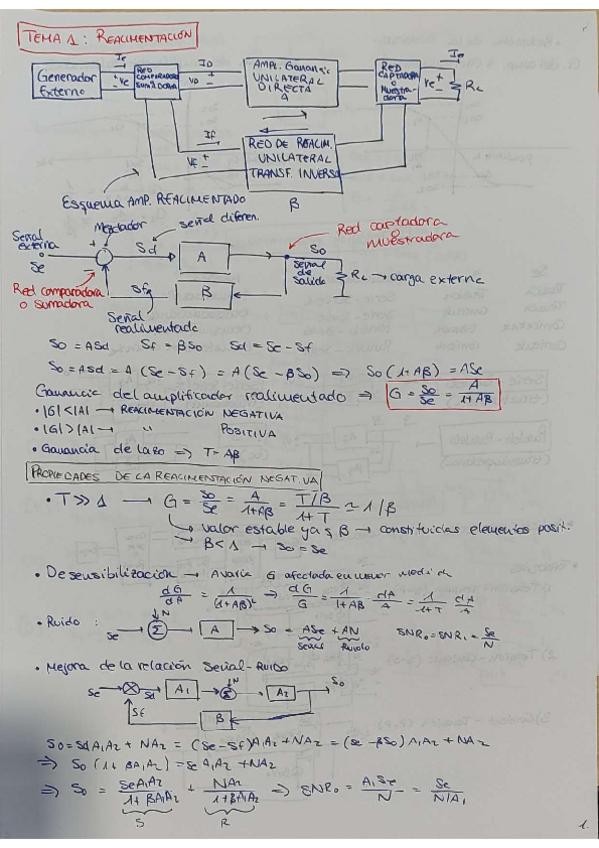 TEMA 1: REALIMENTACIÓN
Generador Externo
Ve
RED COMPARADORA SUMADORA
IO
VO
AMPL. Ganancia UNILATERAL DIRECTA A
RED CAPTADORA O Muestradora
RL
If
Vf
RED DE REALIM. UNILATERAL TRANSF. INVERSO
β
Esquema AMP. REALIMENTADO
Mezclador
señal diferen.
Red captadora o muestradora
Señal externa
Se
+
-
Sd
A
So
señal de salida
RL → carga externa
β
Sf
Red comparadora o sumadora
Señal realimentada
So = ASd Sf = βSo Sd = Se - Sf
So = ASd = A (Se - Sf) = A (Se - βSo) ⇒ So (1+Aβ) = ASe
Ganancia del amplificador realimentado ⇒ G = So/Se = A/1+Aβ
• |G|<|A| → REALIMENTACIÓN NEGATIVA
• |G|>|A| → " POSITIVA
• Ganancia de lazo ⇒ T = Aβ
PROPIEDADES DE LA REALIMENTACIÓN NEGATIVA
• T≫1 → G = So/Se = A/1+Aβ = T/β/1+T ≃ 1/β
→ valor estable ya q β → constituidas elementos
→ β<1 → So = Se
• Desensibilización → G afectada en menor medida
dG/dA = 1/(1+Aβ)² ⇒ dG/G = 1/1+Aβ dA/A = 1/1+T dA/A
• Ruido: Se → Σ → A → So = ASe + AN SNRo = SNRi = Se/N
N
Señal Ruido
• Mejora de la relación Señal-Ruido
Se Sd A1 Σ N A2 So
Sf β
So = SdA1A2 + NA2 = (Se - Sf)A1A2 + NA2 = (Se - βSo) A1A2 + NA2
⇒ So (1 + βA1A2) = Se A1A2 + NA2
⇒ So = SeA1A2/1+βA1A2 + NA2/1+βA1A2 ⇒ SNRo = A1Se/N = Se/N/A1
S R
1.